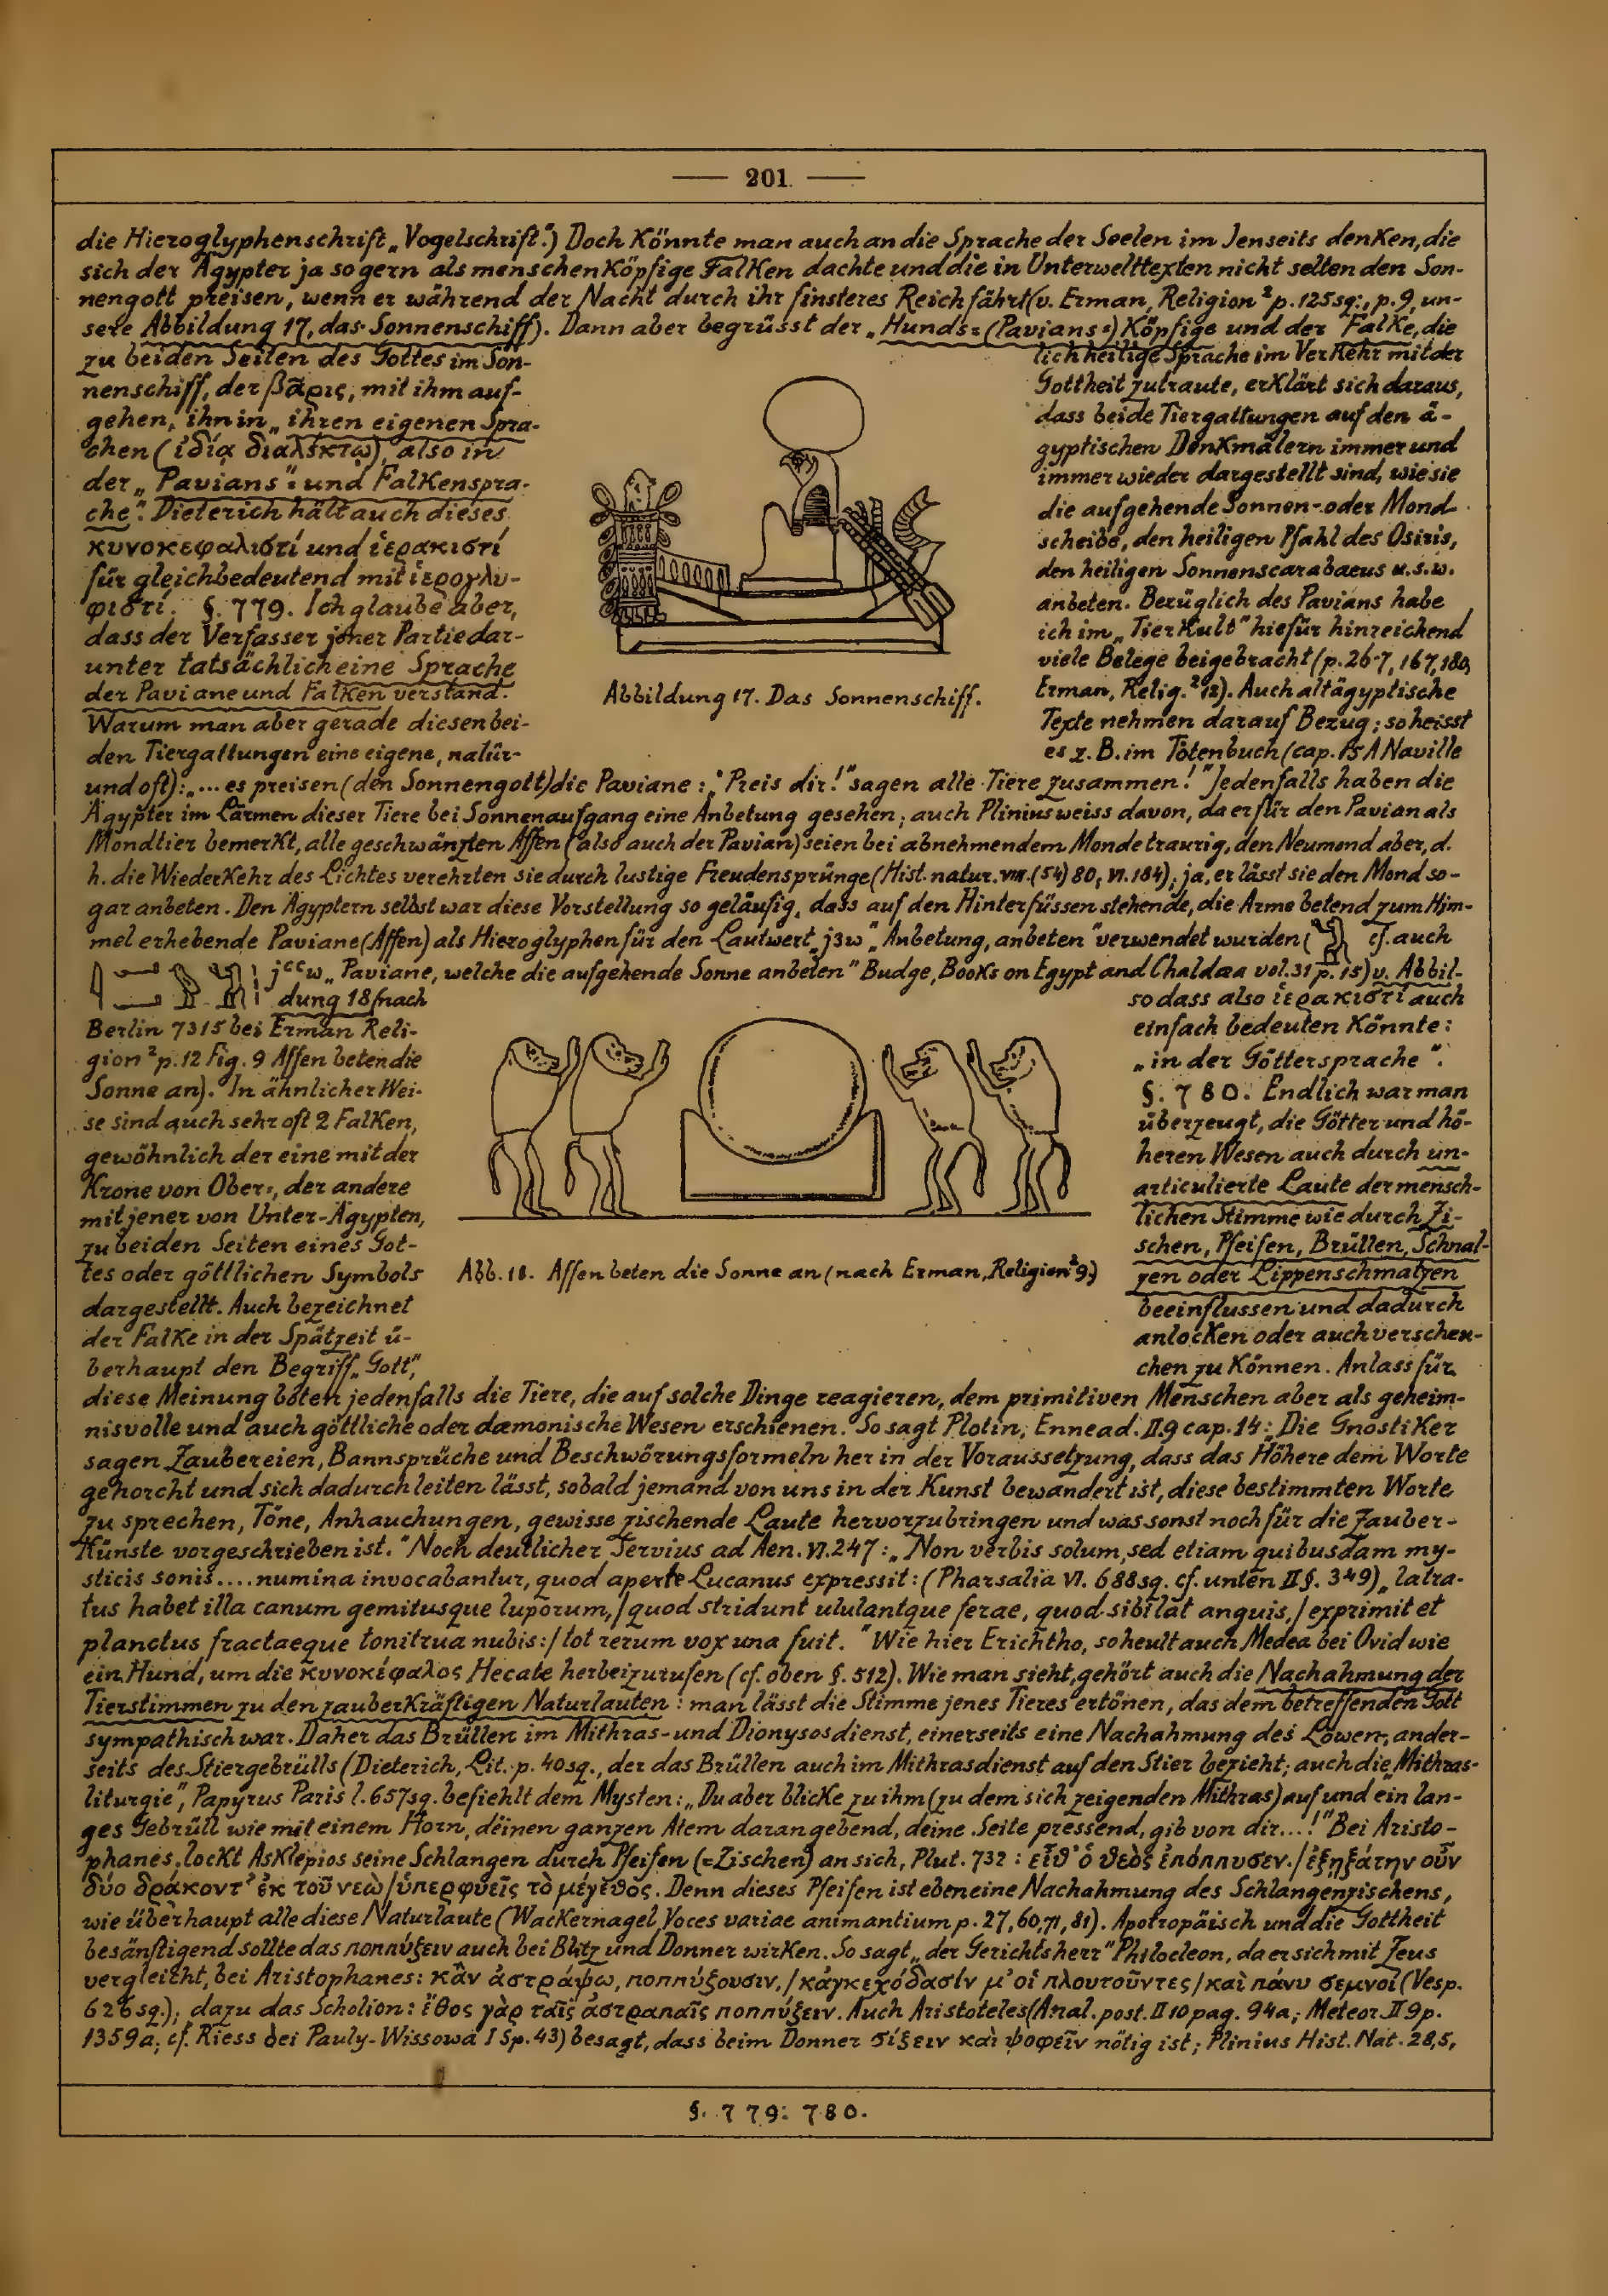 201
die Hieroglyphenschrift „Vogelschrift“.) Doch könnte man auch an die Sprache der Seelen im Jenseits denken, die
sich der Ägypter ja so gern als menschenköpfige Falken dachte und die in Unterwelttexten nicht selten den Son-
nengott preisen, wenn er während der Nacht durch ihr finsteres Reich fährt (v. Erman, Religion ² p. 125 sq., p. 9, un-
sere Abbildung 17, das Sonnenschiff). Dann aber begrüsst der „Hunds=(Pavians=)köpfige und der Falke, die
zu beiden Seiten des Gottes im Son-
nenschiff, der βᾶρις, mit ihm auf-
gehen, ihn in „ihren eigenen Spra-
chen (ἰδίᾳ διαλέκτῳ), also in
der „Pavians“= und Falkenspra-
che“. Dieterich hält auch dieses
κυνοκεφαλιστί und ἱερακιστί
für gleichbedeutend mit ἱερογλυ-
φιστί. §. 779. Ich glaube aber,
dass der Verfasser jener Partie dar-
unter tatsächlich eine Sprache
der Paviane und Falken verstand.
Warum man aber gerade diesen bei-
den Tiergattungen eine eigene, natür-
Abbildung 17. Das Sonnenschiff.
lich heilige Sprache im Verkehr mit der
Gottheit zutraute, erklärt sich daraus,
dass beide Tiergattungen auf den ä-
gyptischen Denkmälern immer und
immer wieder dargestellt sind, wie sie
die aufgehende Sonnen- oder Mond-
scheibe, den heiligen Pfahl des Osiris,
den heiligen Sonnenscarabaeus u.s.w.
anbeten. Bezüglich des Pavians habe
ich im „Tierkult“ hiefür hinreichend
viele Belege beigebracht (p. 26-7, 167, 180,
Erman, Relig. ² 12). Auch altägyptische
Texte nehmen darauf Bezug; so heisst
es z. B. im Totenbuch (cap. A Naville
und oft): „... es preisen (den Sonnengott) die Paviane: „Preis dir!“ sagen alle Tiere zusammen!“ Jedenfalls haben die
Ägypter im Lärmen dieser Tiere bei Sonnenaufgang eine Anbetung gesehen; auch Plinius weiss davon, da er für den Pavian als
Mondtier bemerkt, alle geschwänzten Affen (also auch der Pavian) seien bei abnehmendem Monde traurig, den Neumond aber, d.
h. die Wiederkehr des Lichtes verehrten sie durch lustige Freudensprünge (Hist. natur. VIII. (54) 80; VI. 184); ja, er lässt sie den Mond so-
gar anbeten. Den Ägyptern selbst war diese Vorstellung so geläufig, dass auf den Hinterfüssen stehende, die Arme betend zum Him-
mel erhebende Paviane (Affen) als Hieroglyphen für den Lautwert „j3w“ „Anbetung, anbeten“ verwendet wurden ( cf. auch
jᶜᶜw „Paviane, welche die aufgehende Sonne anbeten“ Budge, Books on Egypt and Chaldæa vol. 31 p. 15) v. Abbil-
dung 18 (nach
Berlin 7315 bei Erman Reli-
gion ² p. 12 Fig. 9 Affen beten die
Sonne an). In ähnlicher Wei-
se sind auch sehr oft 2 Falken,
gewöhnlich der eine mit der
Krone von Ober-, der andere
mit jener von Unter-Ägypten,
zu beiden Seiten eines Got-
tes oder göttlichen Symbols
dargestellt. Auch bezeichnet
der Falke in der Spätzeit ü-
berhaupt den Begriff „Gott“,
Abb. 18. Affen beten die Sonne an (nach Erman, „Religion² 9.)
so dass also ἱερακιστί auch
einfach bedeuten könnte:
„in der Göttersprache“.
§. 780. Endlich war man
überzeugt, die Götter und hö-
heren Wesen auch durch un-
articulierte Laute der mensch-
lichen Stimme wie durch Zi-
schen, Pfeifen, Brüllen, Schnal-
zen oder Lippenschmatzen
beeinflussen und dadurch
anlocken oder auch verscheu-
chen zu können. Anlass für
diese Meinung boten jedenfalls die Tiere, die auf solche Dinge reagieren, dem primitiven Menschen aber als geheim-
nisvolle und auch göttliche oder dæmonische Wesen erschienen. So sagt Plotin, Ennead. II.9 cap. 14: „Die Gnostiker
sagen Zaubereien, Bannsprüche und Beschwörungsformeln her in der Voraussetzung, dass das Höhere dem Worte
gehorcht und sich dadurch leiten lässt, sobald jemand von uns in der Kunst bewandert ist, diese bestimmten Worte
zu sprechen, Töne, Anhauchungen, gewisse zischende Laute hervorzubringen und was sonst noch für die Zauber-
künste vorgeschrieben ist.“ Noch deutlicher Servius ad Aen. VI. 247: „Non verbis solum, sed etiam quibusdam my-
sticis sonis .... numina invocabantur, quod aperte Lucanus expressit: (Pharsalia VI. 688 sq. cf. unten II §. 349) „latra-
tus habet illa canum gemitusque luporum, / quod stridunt ululantque ferae, quod sibilat anguis, / exprimit et
planctus fractaeque tonitrua nubis: / tot rerum vox una fuit.“ Wie hier Erichtho, so heult auch Medea bei Ovid wie
ein Hund, um die κυνοκέφαλος Hecate herbeizurufen (cf. oben §. 512). Wie man sieht, gehört auch die Nachahmung der
Tierstimmen zu den zauberkräftigen Naturlauten: man lässt die Stimme jenes Tieres ertönen, das dem betreffenden Gott
sympathisch war. Daher das Brüllen im Mithras- und Dionysosdienst, einerseits eine Nachahmung des Löwen-, ander-
seits des Stiergebrülls (Dieterich, Lit. p. 40 sq., der das Brüllen auch im Mithrasdienst auf den Stier bezieht; auch die „Mithras-
liturgie“, Papyrus Paris l. 657 sq. befiehlt dem Mysten: „Du aber blicke zu ihm (zu dem sich zeigenden Mithras) auf und ein lan-
ges Gebrüll wie mit einem Horn, deinen ganzen Atem darangebend, deine Seite pressend, gib von dir...!“ Bei Aristo-
phanes lockt Asklepios seine Schlangen durch Pfeifen (=Zischen) an sich, Plut. 732: εἶθ᾽ ὁ θεὸς ἐπόππυσεν. / ἐξῃξάτην οὖν
δύο δράκοντ᾽ ἐκ τοῦ νεὼ / ὑπερφυεῖς τὸ μέγεθος. Denn dieses Pfeifen ist eben eine Nachahmung des Schlangenzischens,
wie überhaupt alle diese Naturlaute (Wackernagel, Voces variae animantium p. 27, 60, 71, 81). Apotropäisch und die Gottheit
besänftigend sollte das ποππύζειν auch bei Blitz und Donner wirken. So sagt „der Gerichtsherr“ Philocleon, da er sich mit Zeus
vergleicht, bei Aristophanes: κἂν ἀστράψω, ποππύζουσιν, / κἀγκεχόδασίν μ᾽ οἱ πλουτοῦντες / καὶ πάνυ σεμνοί (Vesp.
626 sq.); dazu das Scholion: ἔθος γὰρ ταῖς ἀστραπαῖς ποππύζειν. Auch Aristoteles (Anal. post. II 10 pag. 94a; Meteor. II 9 p.
1359a; cf. Riess bei Pauly-Wissowa I Sp. 43) besagt, dass beim Donner σίζειν καὶ ψοφεῖν nötig ist; Plinius Hist. Nat. 28,5,
§. 779: 780.